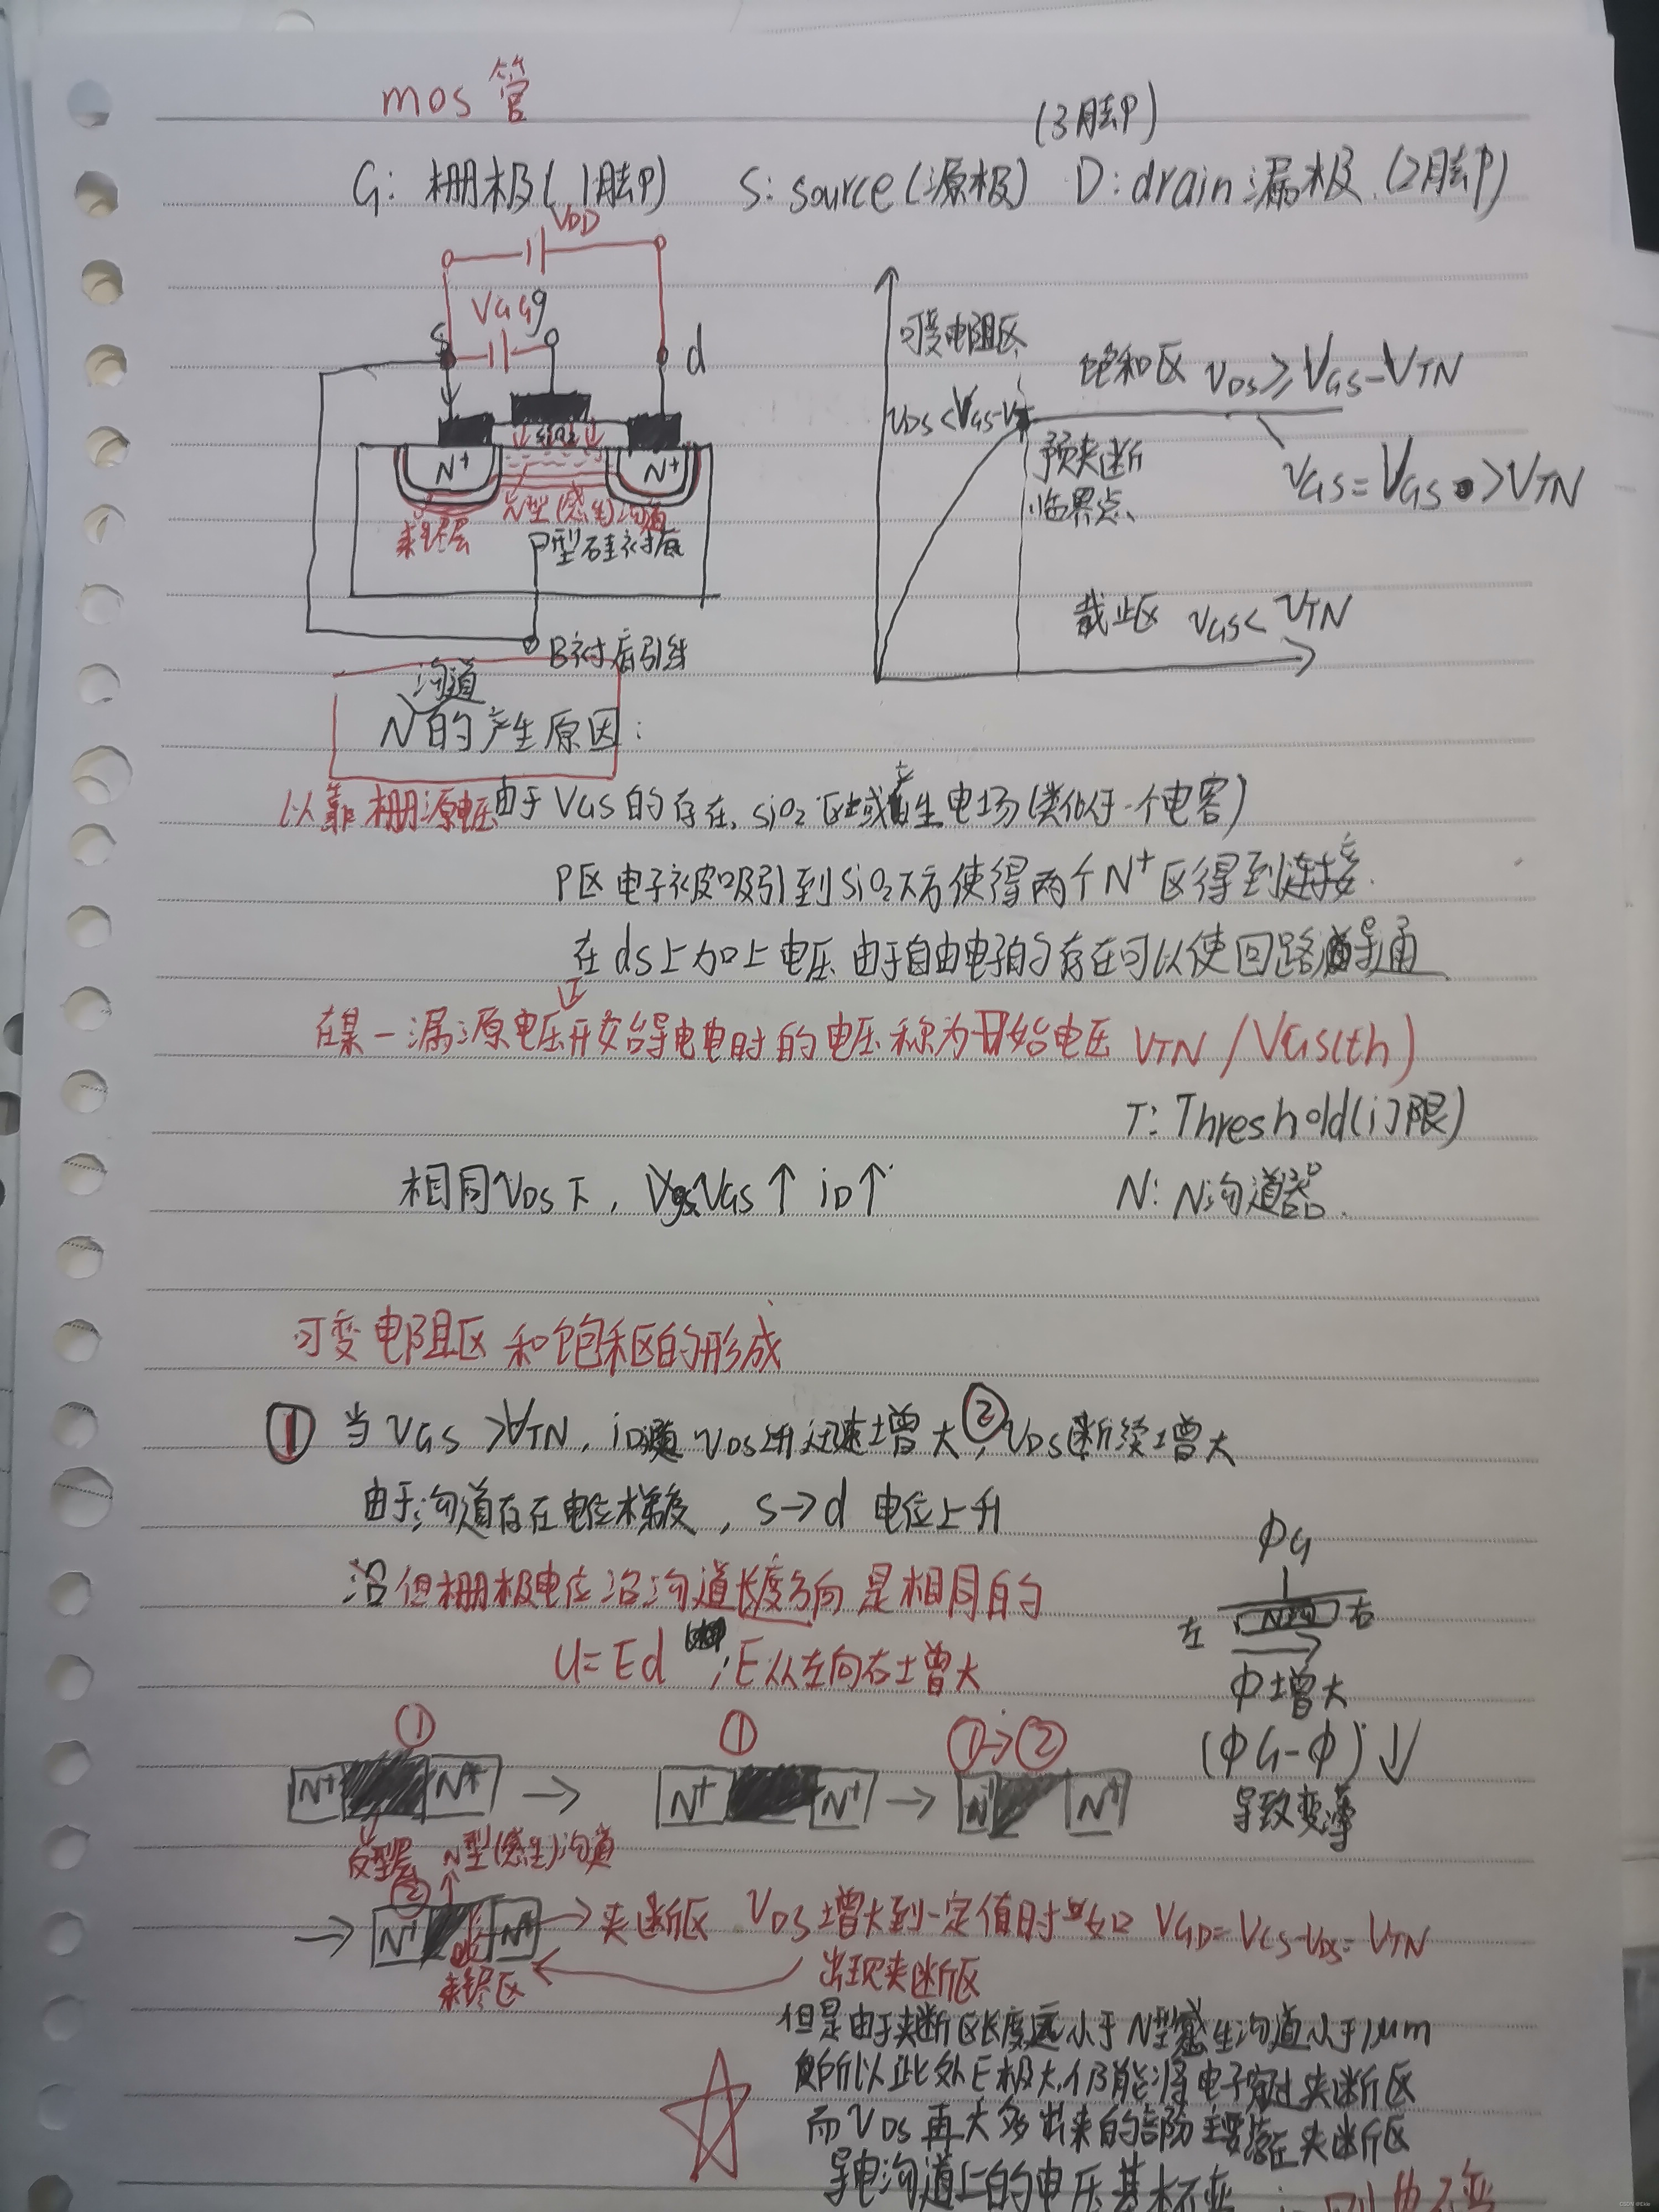 mos管
(3脚)
G: 栅极(1脚) S: source(源极) D: drain漏极.(2脚)
VDD
VGG g
s d
可变电阻区
饱和区 VDS≥VGS-VTN
VDS<VGS-VT
SiO2
N+ N+
预夹断
临界点、
VGS=VGS>VTN
耗尽层
N型(感生)沟道
P型硅衬底
截止区 VGS<VTN
B衬底引线
沟道
N的产生原因:
以靠栅源电压由于VGS的存在, SiO2区域产生电场(类似于一个电容)
P区电子被吸引到SiO2下方使得两个N+区得到连接.
在ds上加上电压 由于自由电子的存在可以使回路导通
在某一漏源电压开始导电时的电压称为开始电压 VTN / VGS(th)
T: Threshold(门限)
相同VDS下, VGS↑ iD↑
N: N沟道器.
可变电阻区和饱和区的形成
① 当VGS>VTN, iD随VDS升迅速增大, ②VDS断续增大
由于沟道存在电位梯度, s→d 电位上升
但栅极电位沿沟道长度方向是相同的
U=Ed ; E从左向右增大
ΦG
左 N沟 右
Φ增大
(ΦG-Φ)↓
导致变薄
① ① ①→②
N+ N+ → N+ N+ → N+ N+
反型层 N型(感生)沟道
②
→ N+ N+ → 夹断区 VDS增大到一定值时 如 VGD=VGS-VDS=VTN
耗尽区
出现夹断区
但是由于夹断区长度远小于N型感生沟道小于1μm
所以此处E极大,仍能将电子穿过夹断区
而VDS再大多出来的部分主要落在夹断区
导电沟道上的电压基本不变